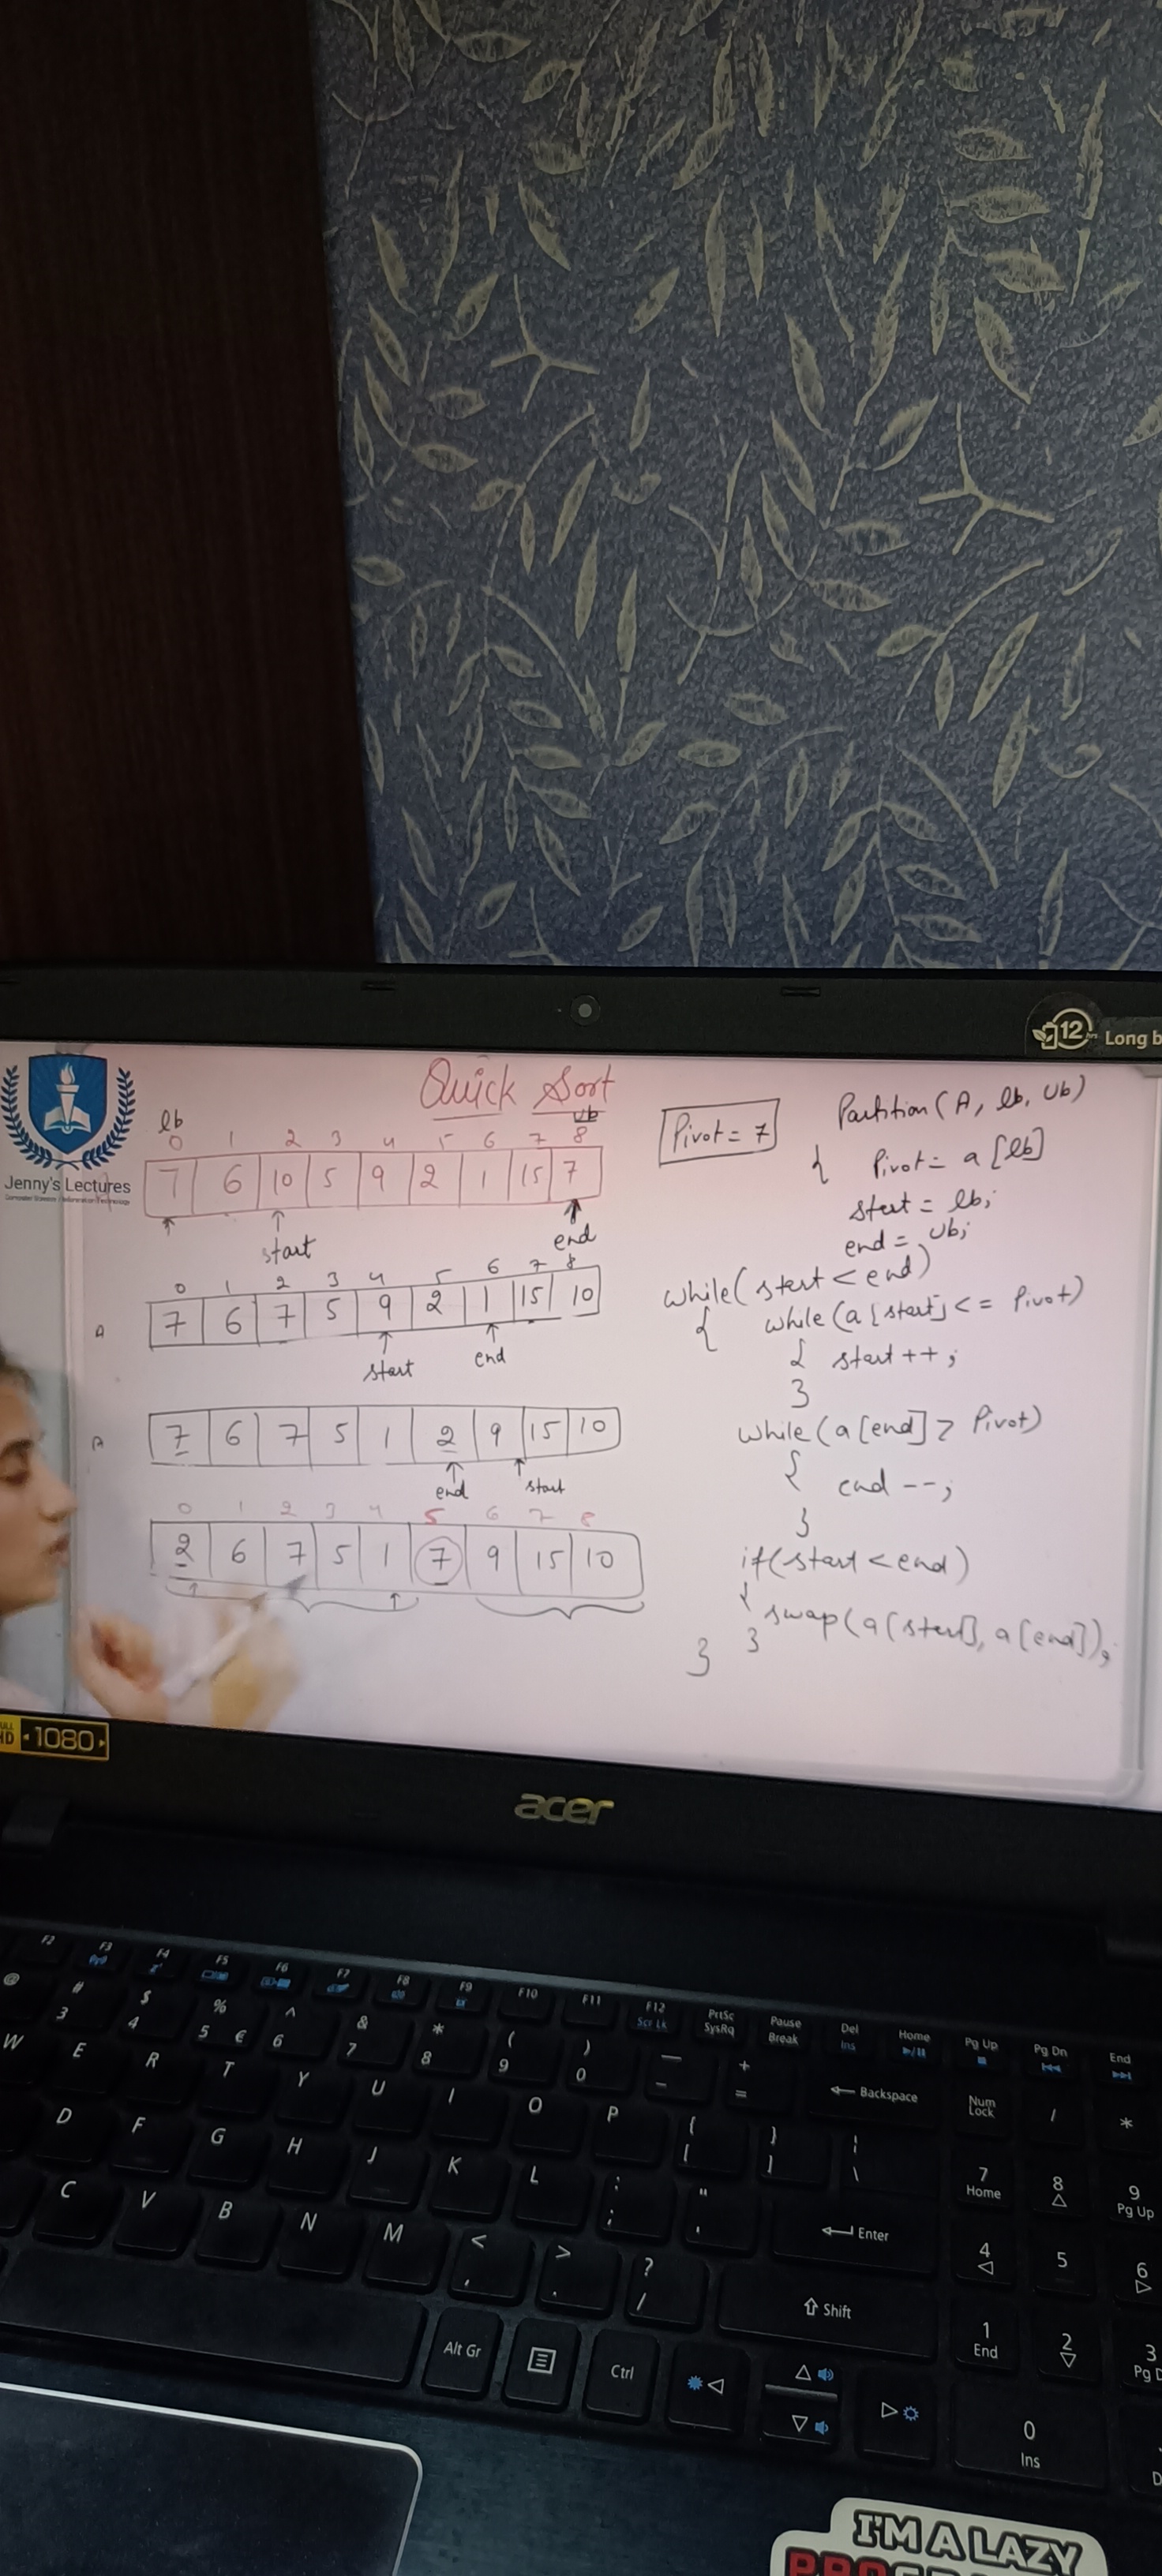 12 hrs Long b
Jenny's Lectures
Quick Sort
lb
ub
0 1 2 3 4 5 6 7 8
7 6 10 5 9 2 1 15 7
start
end
0 1 2 3 4 5 6 7 8
A 7 6 7 5 9 2 1 15 10
start end
A 7 6 7 5 1 2 9 15 10
end start
0 1 2 3 4 5 6 7 8
2 6 7 5 1 7 9 15 10
Pivot = 7
Partition(A, lb, ub)
{ Pivot = a[lb]
start = lb;
end = ub;
while(start < end)
{ while(a[start] <= Pivot)
{ start++;
}
while(a[end] > Pivot)
{
end --;
}
if(start < end)
{
swap(a[start], a[end]);
}
}
1080
acer
F2 F3 F4 F5 F6 F7 F8 F9 F10 F11 F12 PrtSc Pause Del Home Pg Up Pg Dn End
Scr Lk SysRq Break Ins
@ # $ % ^ & * ( ) _ +
3 4 5 € 6 7 8 9 0 - = Backspace Num Lock / *
W E R T Y U I O P { } ¦
[ ] \ 7 Home 8 9 Pg Up
D F G H J K L : "
; ' Enter 4 5 6
C V B N M < > ?
, . / Shift 1 End 2 3
Alt Gr Ctrl 0 Ins
I'M A LAZY